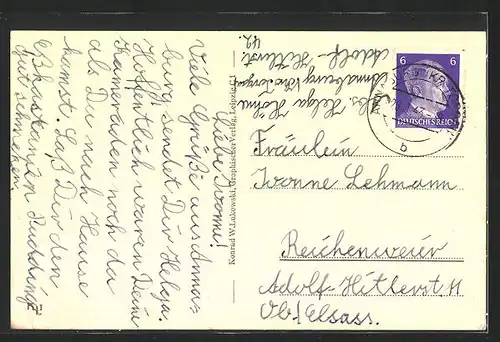 Liebe Ivonne!
Viele Grüße aus Anna
burg sendet Dir Helga.
Hoffentlich waren Deine
Kameraden noch da
als Du nach Hause
kamst. Laß Dir den
Eßkastanien Pudding
gut schmecken.
Abs. Helga
Annaburg Kr. Torgau
Adolf-Hitlerst.
42.
Konrad W. Lukowski, Graphischer Verlag, Leipzig C 1
6 6
DEUTSCHES REICH
b
Fräulein
Ivonne Lehmann
Reichenweier
Adolf-Hitlerst. 11
Ob/Elsass.